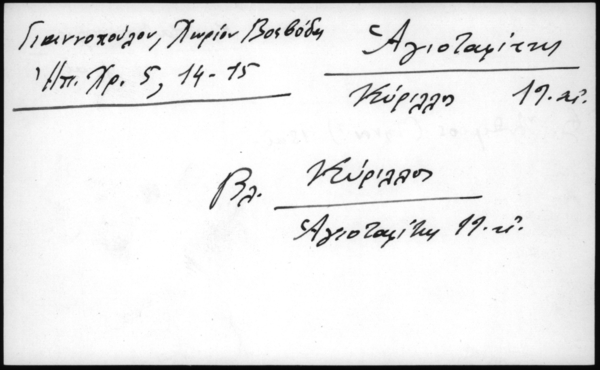 Γιαννοπούλου, Χωρίον Βοεβόδα
Ἠπ. Χρ. 5, 14-15
Ἁγιοταφίτης
Κύριλλος 19. αἰ.
Βλ. Κύριλλος
Ἁγιοταφίτης 19. αἰ.